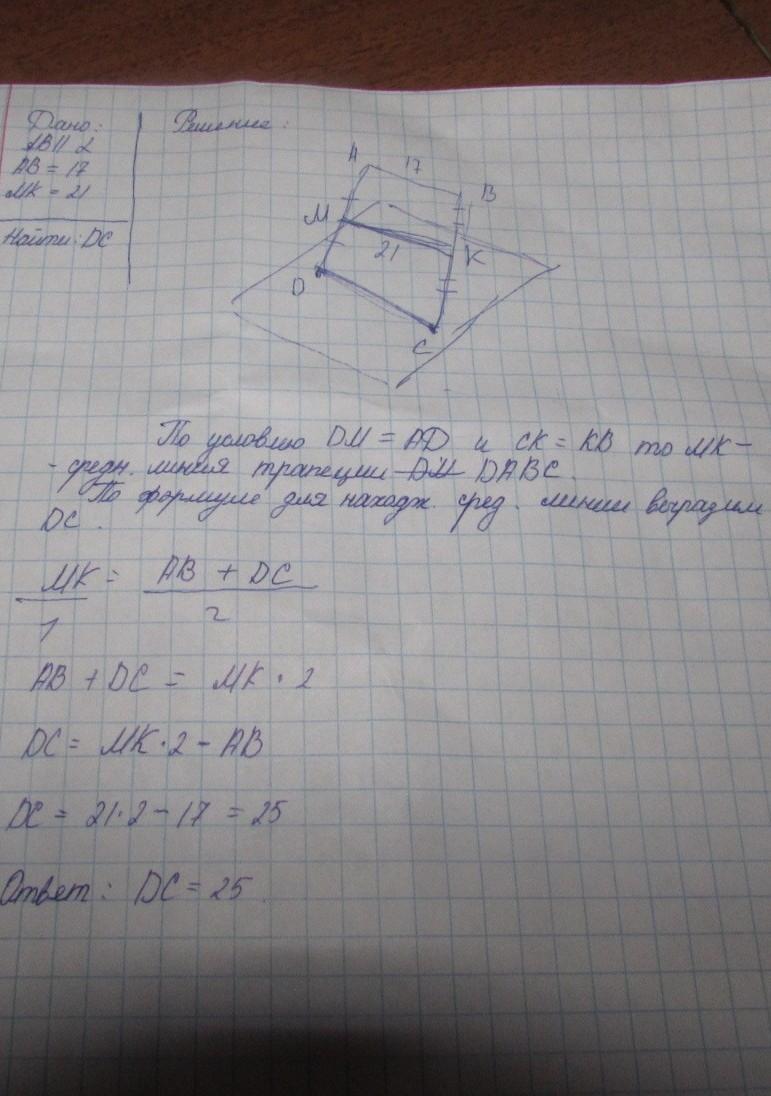 Дано:
AB || α
AB = 17
MK = 21
Найти: DC
Решение:
A 17 B
M 21 K
D
C
По условию DM = AD и CK = KB то MK –
- средн. линия трапеции DM DABC.
По формуле для наход. сред. линии выразим
DC.
MK = AB + DC
1 2
AB + DC = MK · 2
DC = MK · 2 – AB
DC = 21·2 – 17 = 25
Ответ: DC = 25.